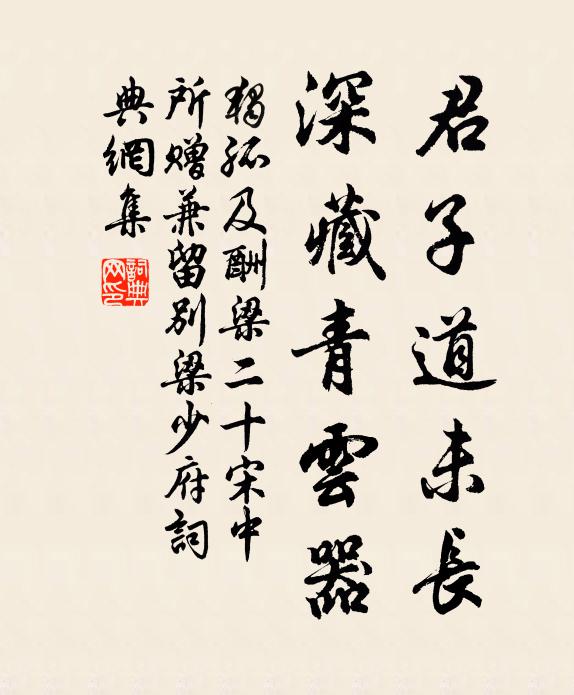 君子道未長
深藏青雲器
獨孤及酬梁二十宋中
所贈兼留別梁少府詞
典網集
詞典网印